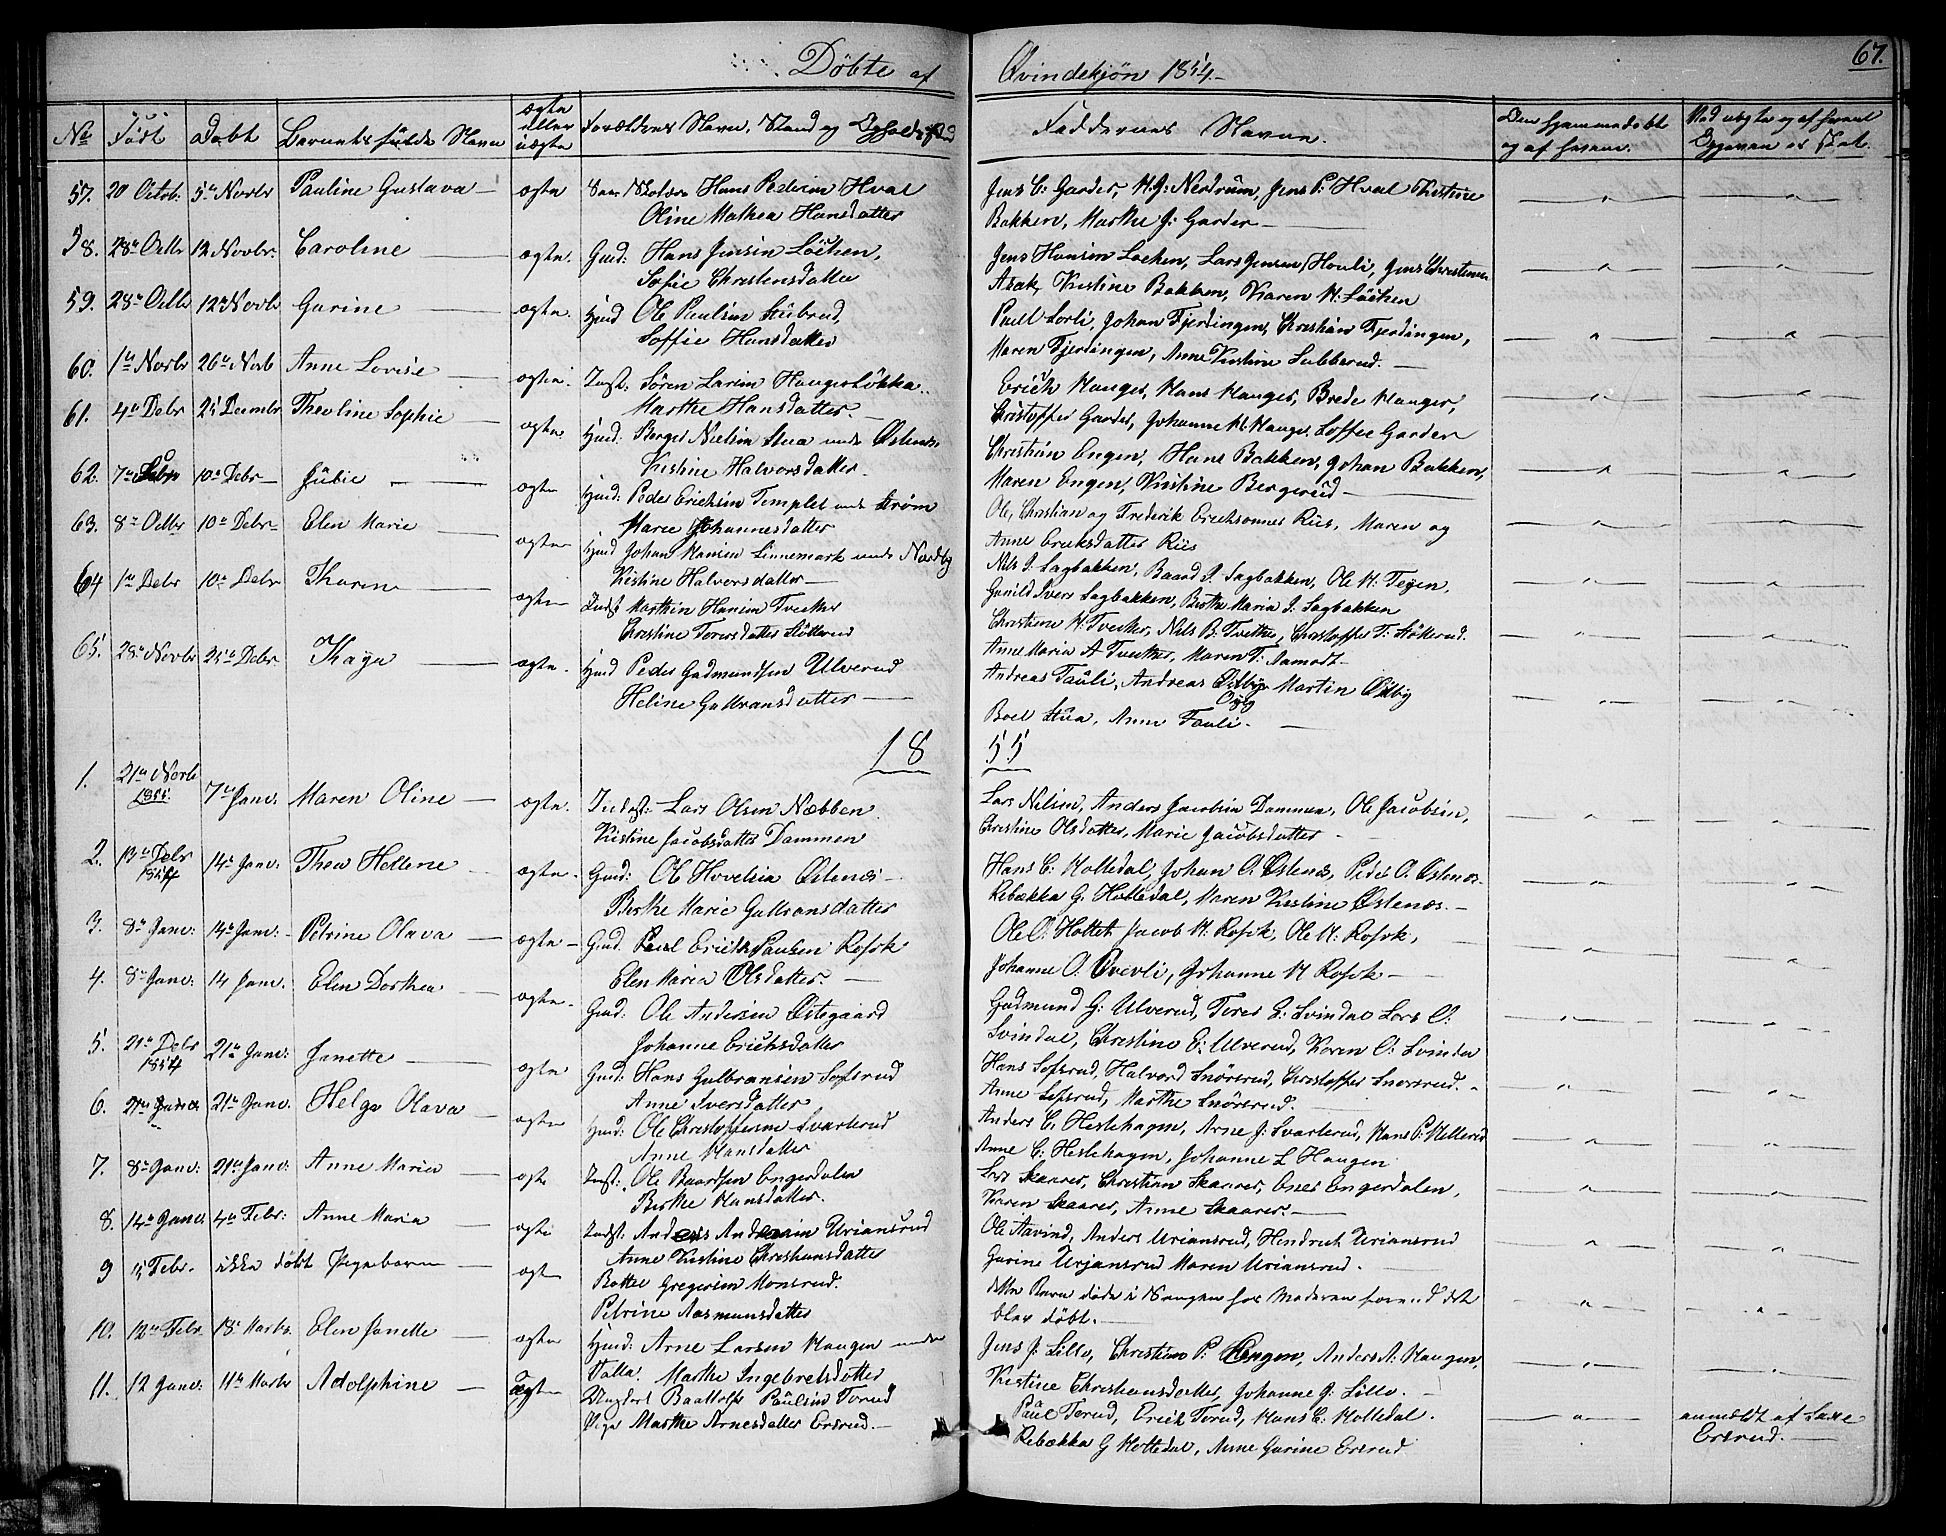 Döbte af Qvindekjön 1854.
67.
No Födt Döbt Barnets fulde Navn ægte eller uægte Forældrenes Navn, Stand og Opholdssted
Faddernes Navne. Om hjemmedöbt og af hvem. Ved uægte og af hvem Opgaven er skeet.
57. 20 Octob: 5te Novbr Pauline Gustava ægte Hans Pedersen Hval
Oline Mathea Hansdatter
Jens C: Garder, H. J: Nordrum, Jens P: Hval Kristine
Bakken, Marthe J: Garder
58. 28de Octbr 12 Novbr: Caroline ægte. Gmd: Hans Jensen Löchen,
Sofie Christensdatter
Jens Hansen Löchen, Lars Jensen Houli, Jens Christensen
Asak, Kristine Bakken, Karen H: Löchen
59. 28de Octbr 12te Novbr Gurine ægte. Hmd Ole Paulsen Stubrud,
Soffie Hansdatter
Paul Lorli, Johan Fjerdingen, Christian Fjerdingen,
Maren Fjerdingen, Anne Kristine Lubberud.
60. 1te Novbr 26de Novb Anne Lovise ægte Inst: Sören Larsen Haugerlökka
Marthe Hansdatter.
Erich Hauger, Hans Hauger, Brede Hauger,
Cristoffer Garder, Johanne H: Hauger, Soffie Garder
61. 4de Debr 25 Decmbr Theoline Sophie ægte Hmd: Berger Nielsen Stua under Östenæs
Kristine Halvorsdatter
Christian Engen, Hans Bakken, Johan Bakken,
Maren Engen, Kristine Bergerud
62. 7de Octbr 10de Debr Julie ægte Hmd: Peder Erichsen Templet under Ström
Marie Johannesdatter
Ole, Christian og Frederik Erichsønnes Riis, Maren og
Anne Eriksdatter Riis
63. 8de Octbr 10de Debr Elen Marie ægte Hmd Johan Hansen Linnemark under Nordby
Kristine Halvorsdatter
Nils J. Sagbakken, Baard J. Sagbakken, Ole H. Teyen,
Gunild Ivers Sagbakken, Berthe Maria J. Sagbakken
64 1te Debr 10de Debr Karen ægte Indst Marthin Hansen Tveter
Christine Toresdatter Stötterud
Christian H. Tveter, Nils B. Tvether, Christoffer T: Stötterud.
Anne Maria A Tvether, Maren T: Aamodt
65. 28de Novbr 25de Debr Kaja ægte. Hmd Peder Gudmundsen Ulverud
Heline Gulbransdatter
Andreas Tauli, Andreas Ödby Martin Ödby
Boel Stua, Anne Tauli.
18 55
1. 21de Novb 7de Janv: Maren Oline ægte. Indst: Lars Olsen Næbben.
Kristine Jacobsdatter Dammen
Lars Nilsen, Anders Jacobsen Dammen, Ole Jacobsen,
Christine Olsdatter, Marie Jacobsdatter
2. 13de Debr 1854 14de Janv: Thea Hellene ægte. Gmd: Ole Hovelsen Östenæs
Berthe Marie Gulbransdatter
Hans C: Holtedal, Johan O. Östenæs, Peder O. Östenæs
Rebækka G. Holtedal, Maren Kristine Östenæs.
3. 8de Janv: 14de Janv: Petrine Olava ægte Gmd. Paul Erich Paulsen Rosok
Elen Maria Olsdatter.
Ole O: Holtet, Jacob H. Rosok, Ole H. Rosok,
Johanne O. Ovevli, Johanne H Rosok
4. 8de Janv: 14 Janv. Elen Dorthea ægte. Gmd: Ole Andersen Östegaard
Johanne Erichsdatter
Gudmund G: Ulverud, Tores E. Svindal Lars O:
Svindal, Christine E: Ulverud, Karen O: Svindal
5. 21de Debr 1854 21de Janv: Janette ægte Gmd: Hans Gulbransen Sofsrud
Anne Iversdatter
Hans Sofsrud, Halvord Snörsrud, Christoffer Snorsrud.
Anne Sofsrud, Marthe Snörsrud.
6. 21de Janv 21de Janv. Helga Olava ægte Hmd: Ole Christoffersen Svarterud
Anne Hansdatter
Anders C. Heslehagen, Arne J: Svarterud, Hans P: Mellerud
Anne C: Heslehagen, Johanne L Haugen
7. 8de Janv: 21de Janv: Anne Maria ægte Inst: Ole Baardsen Engerdalen
Birthe Hansdatter.
Lars Skaarer, Christian Skaarer, Engerdalen,
Karen Skaarer, Anne Skaarer.
8. 14de Janv: 4de Febr: Anne Maria ægte Indst: Anders Andersen Uriansrud
Anne Kristine Christiansdatter
Ole Aavind, Anders Uriansrud, Hendrich Uriansrud
Gurine Urjansrud Maren Uriansrud.
9 Febr. ikke döbt Pigebarn ægte Bottel Gregersen Monsrud.
Petrine Aasmunsdatter
Barn döde i Sængen hos Moderen forend det
blev döbt.
10. 12te Febr 18 Marts. Elen Janette ægte Hmd: Arne Larsen Haugen under
Valla. Marthe Ingebretsdatter
Jens J. Lillo, Christian P: Engen, Anders A: Haugen,
Kristine Christiansdatter, Johanne J. Lillo.
11. 12 Janv: 11te Marts Adolphine uægte Ungkarl Baattolf Paulsen Torud
Pige Marthe Arnesdatter Ersrud.
Paul Torud, Erick Torud, Hans C. Holtedal.
Rebækka G Holtedal, Anne Gurine Ersrud
anmældt af Lars
Ersrud.